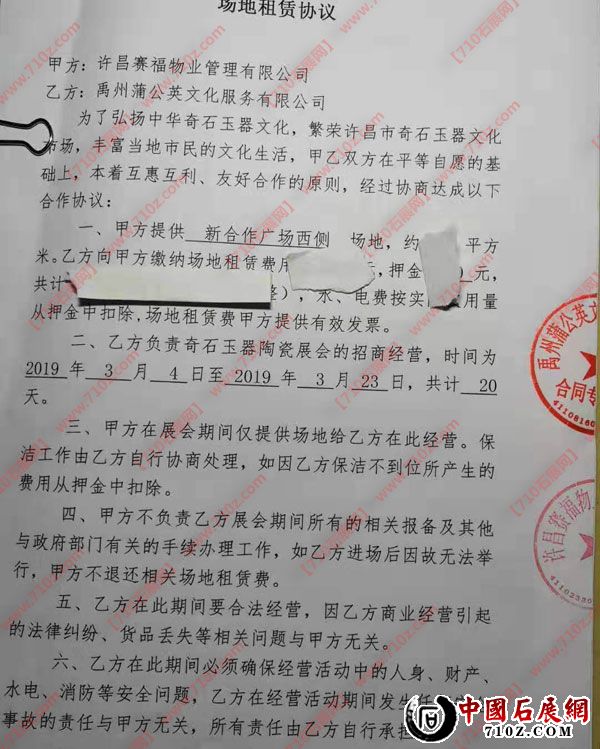 场地租赁协议
甲方：许昌赛福物业管理有限公司
乙方：禹州蒲公英文化服务有限公司
为了弘扬中华奇石玉器文化，繁荣许昌市奇石玉器文化
市场，丰富当地市民的文化生活，甲乙双方在平等自愿的基
础上，本着互惠互利、友好合作的原则，经过协商达成以下
合作协议：
一、甲方提供 新合作广场西侧 场地，约 平方
米。乙方向甲方缴纳场地租赁费用 元，押金 0 元，
共计 整），水、电费按实 用量
从押金中扣除，场地租赁费甲方提供有效发票。
二、乙方负责奇石玉器陶瓷展会的招商经营，时间为
2019 年 3 月 4 日至 2019 年 3 月 23 日，共计 20
天。
三、甲方在展会期间仅提供场地给乙方在此经营。保
洁工作由乙方自行协商处理，如因乙方保洁不到位所产生的
费用从押金中扣除。
四、甲方不负责乙方展会期间所有的相关报备及其他
与政府部门有关的手续办理工作，如乙方进场后因故无法举
行，甲方不退还相关场地租赁费。
五、乙方在此期间要合法经营，因乙方商业经营引起
的法律纠纷、货品丢失等相关问题与甲方无关。
六、乙方在此期间必须确保经营活动中的人身、财产、
水电、消防等安全问题，乙方在经营活动期间发生任
事故的责任与甲方无关，所有责任由乙方自行承担
禹州蒲公英文
合同专
许昌赛福物
中國石展網
710Z.COM
【710石展网】
www.710z.com